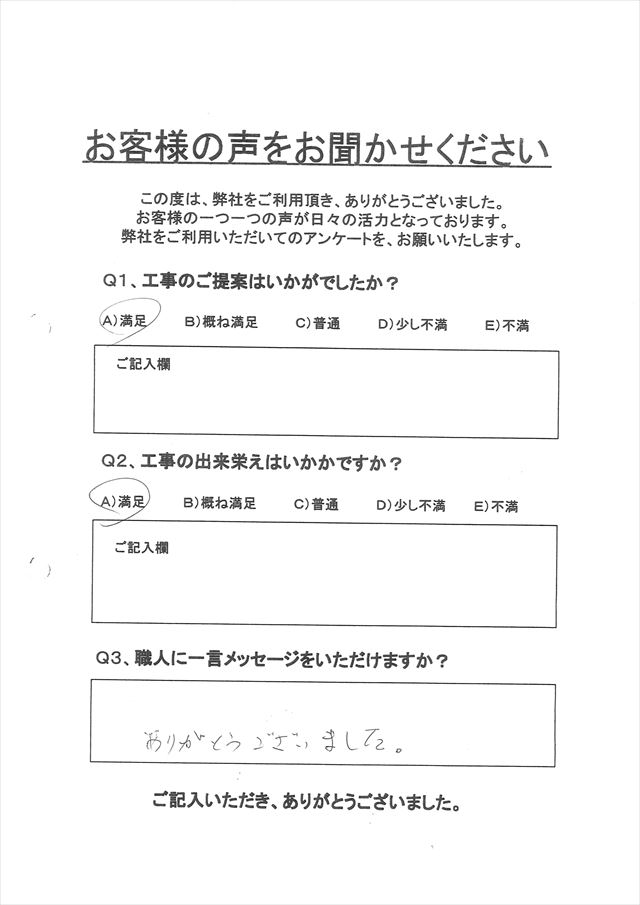 お客様の声をお聞かせください
この度は、弊社をご利用頂き、ありがとうございました。
お客様の一つ一つの声が日々の活力となっております。
弊社をご利用いただいてのアンケートを、お願いいたします。
Q1、工事のご提案はいかがでしたか？
A)満足 B)概ね満足 C)普通 D)少し不満 E)不満
ご記入欄
Q2、工事の出来栄えはいかかですか？
A)満足 B)概ね満足 C)普通 D)少し不満 E)不満
ご記入欄
Q3、職人に一言メッセージをいただけますか？
ありがとうございました。
ご記入いただき、ありがとうございました。